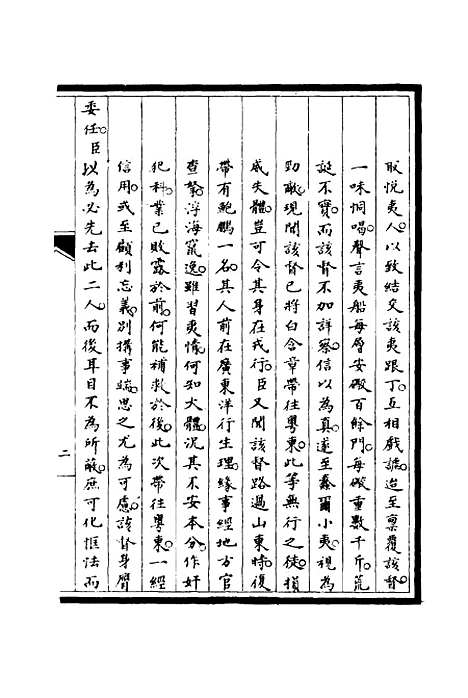 取悅夷人。以致結交該夷跟丁。互相戲謔。迨至稟覆該督。
一味恫喝。聲言夷船每層安礮百餘門。每礮重數千斤。荒
誕不實。而該督不加詳察。信以為真。遂至蕞爾小夷。視為
勁敵。現聞該督已將白含章帶往粵東。此等無行之徒。損
威失體。豈可令其身在戎行。臣又聞該督路過山東時。復
帶有鮑鵬一名。其人前在廣東洋行生理。緣事經地方官
查拏。浮海竄逸。雖習夷情。何知大體。況其不安本分。作奸
犯科。業已敗露於前。何能補救於後。此次帶往粵東。一經
信用。或至顧利忘義。別搆事端。思之尤為可慮。該督身膺
委任。臣以為必先去此二人。而後耳目不為所蔽。庶可化恇怯而
二